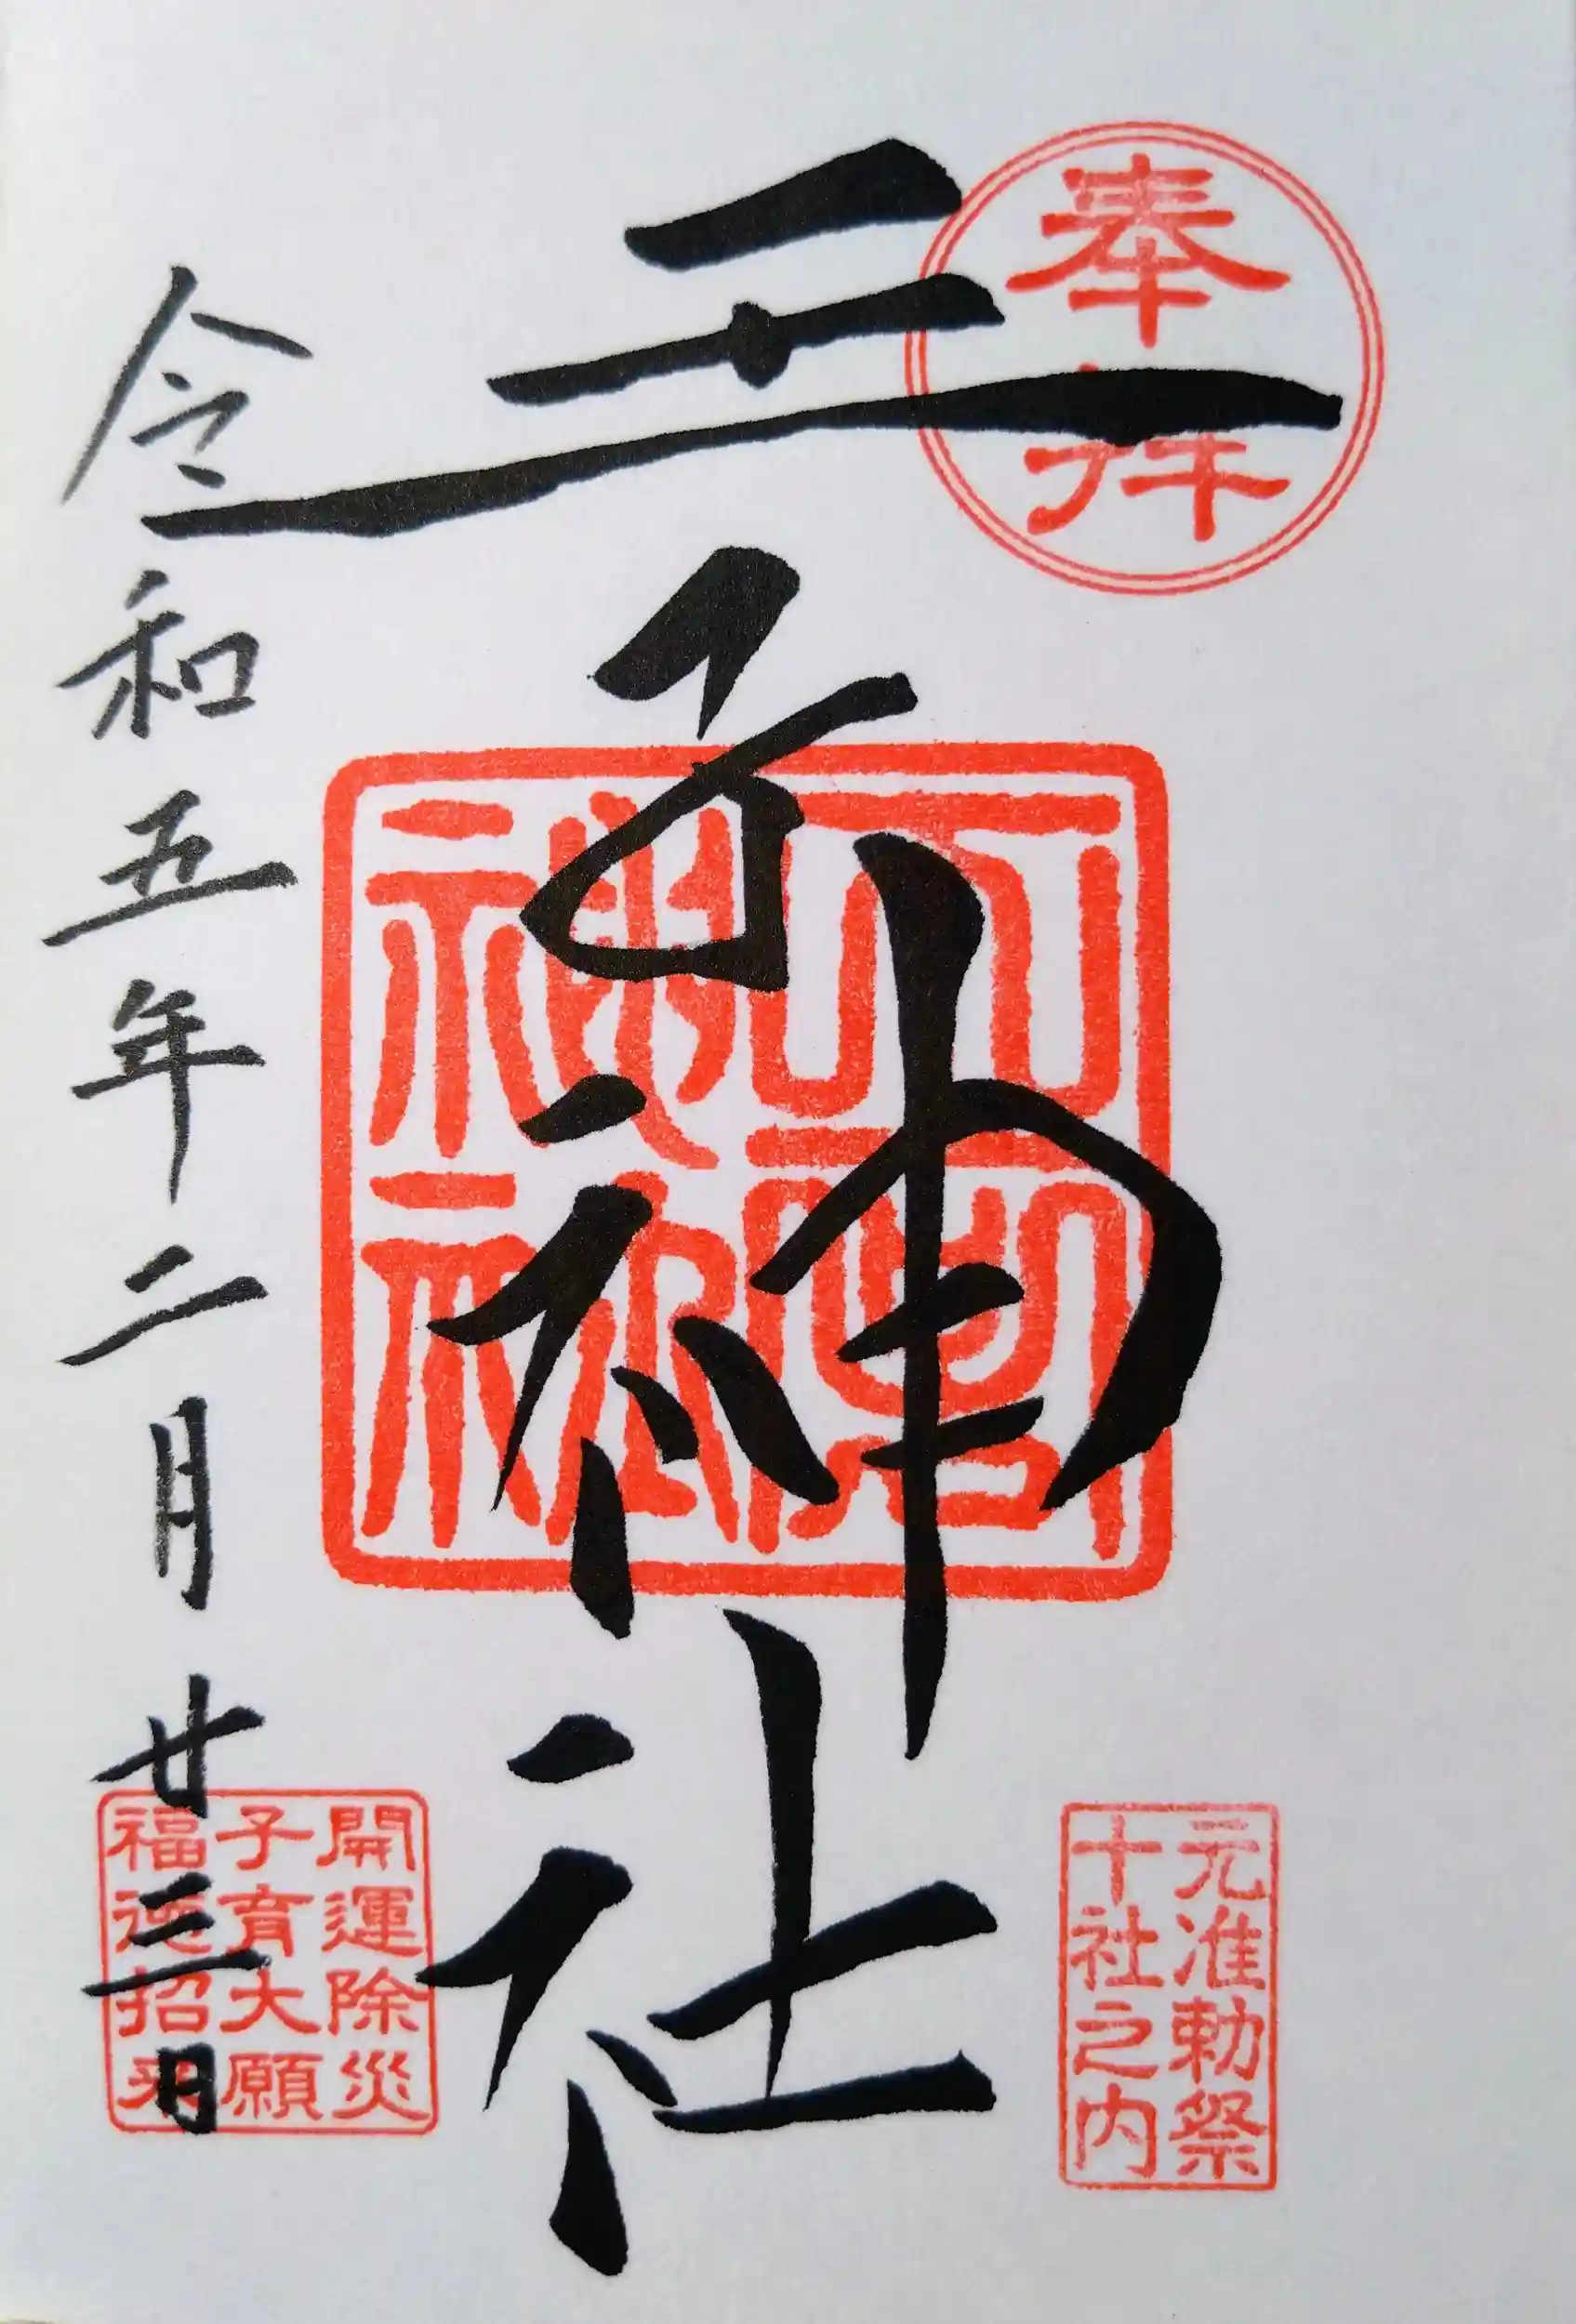 奉拝
元准勅祭
十社之内
王子神社
開運除災
子育大願
福徳招来
令和五年二月廿三日